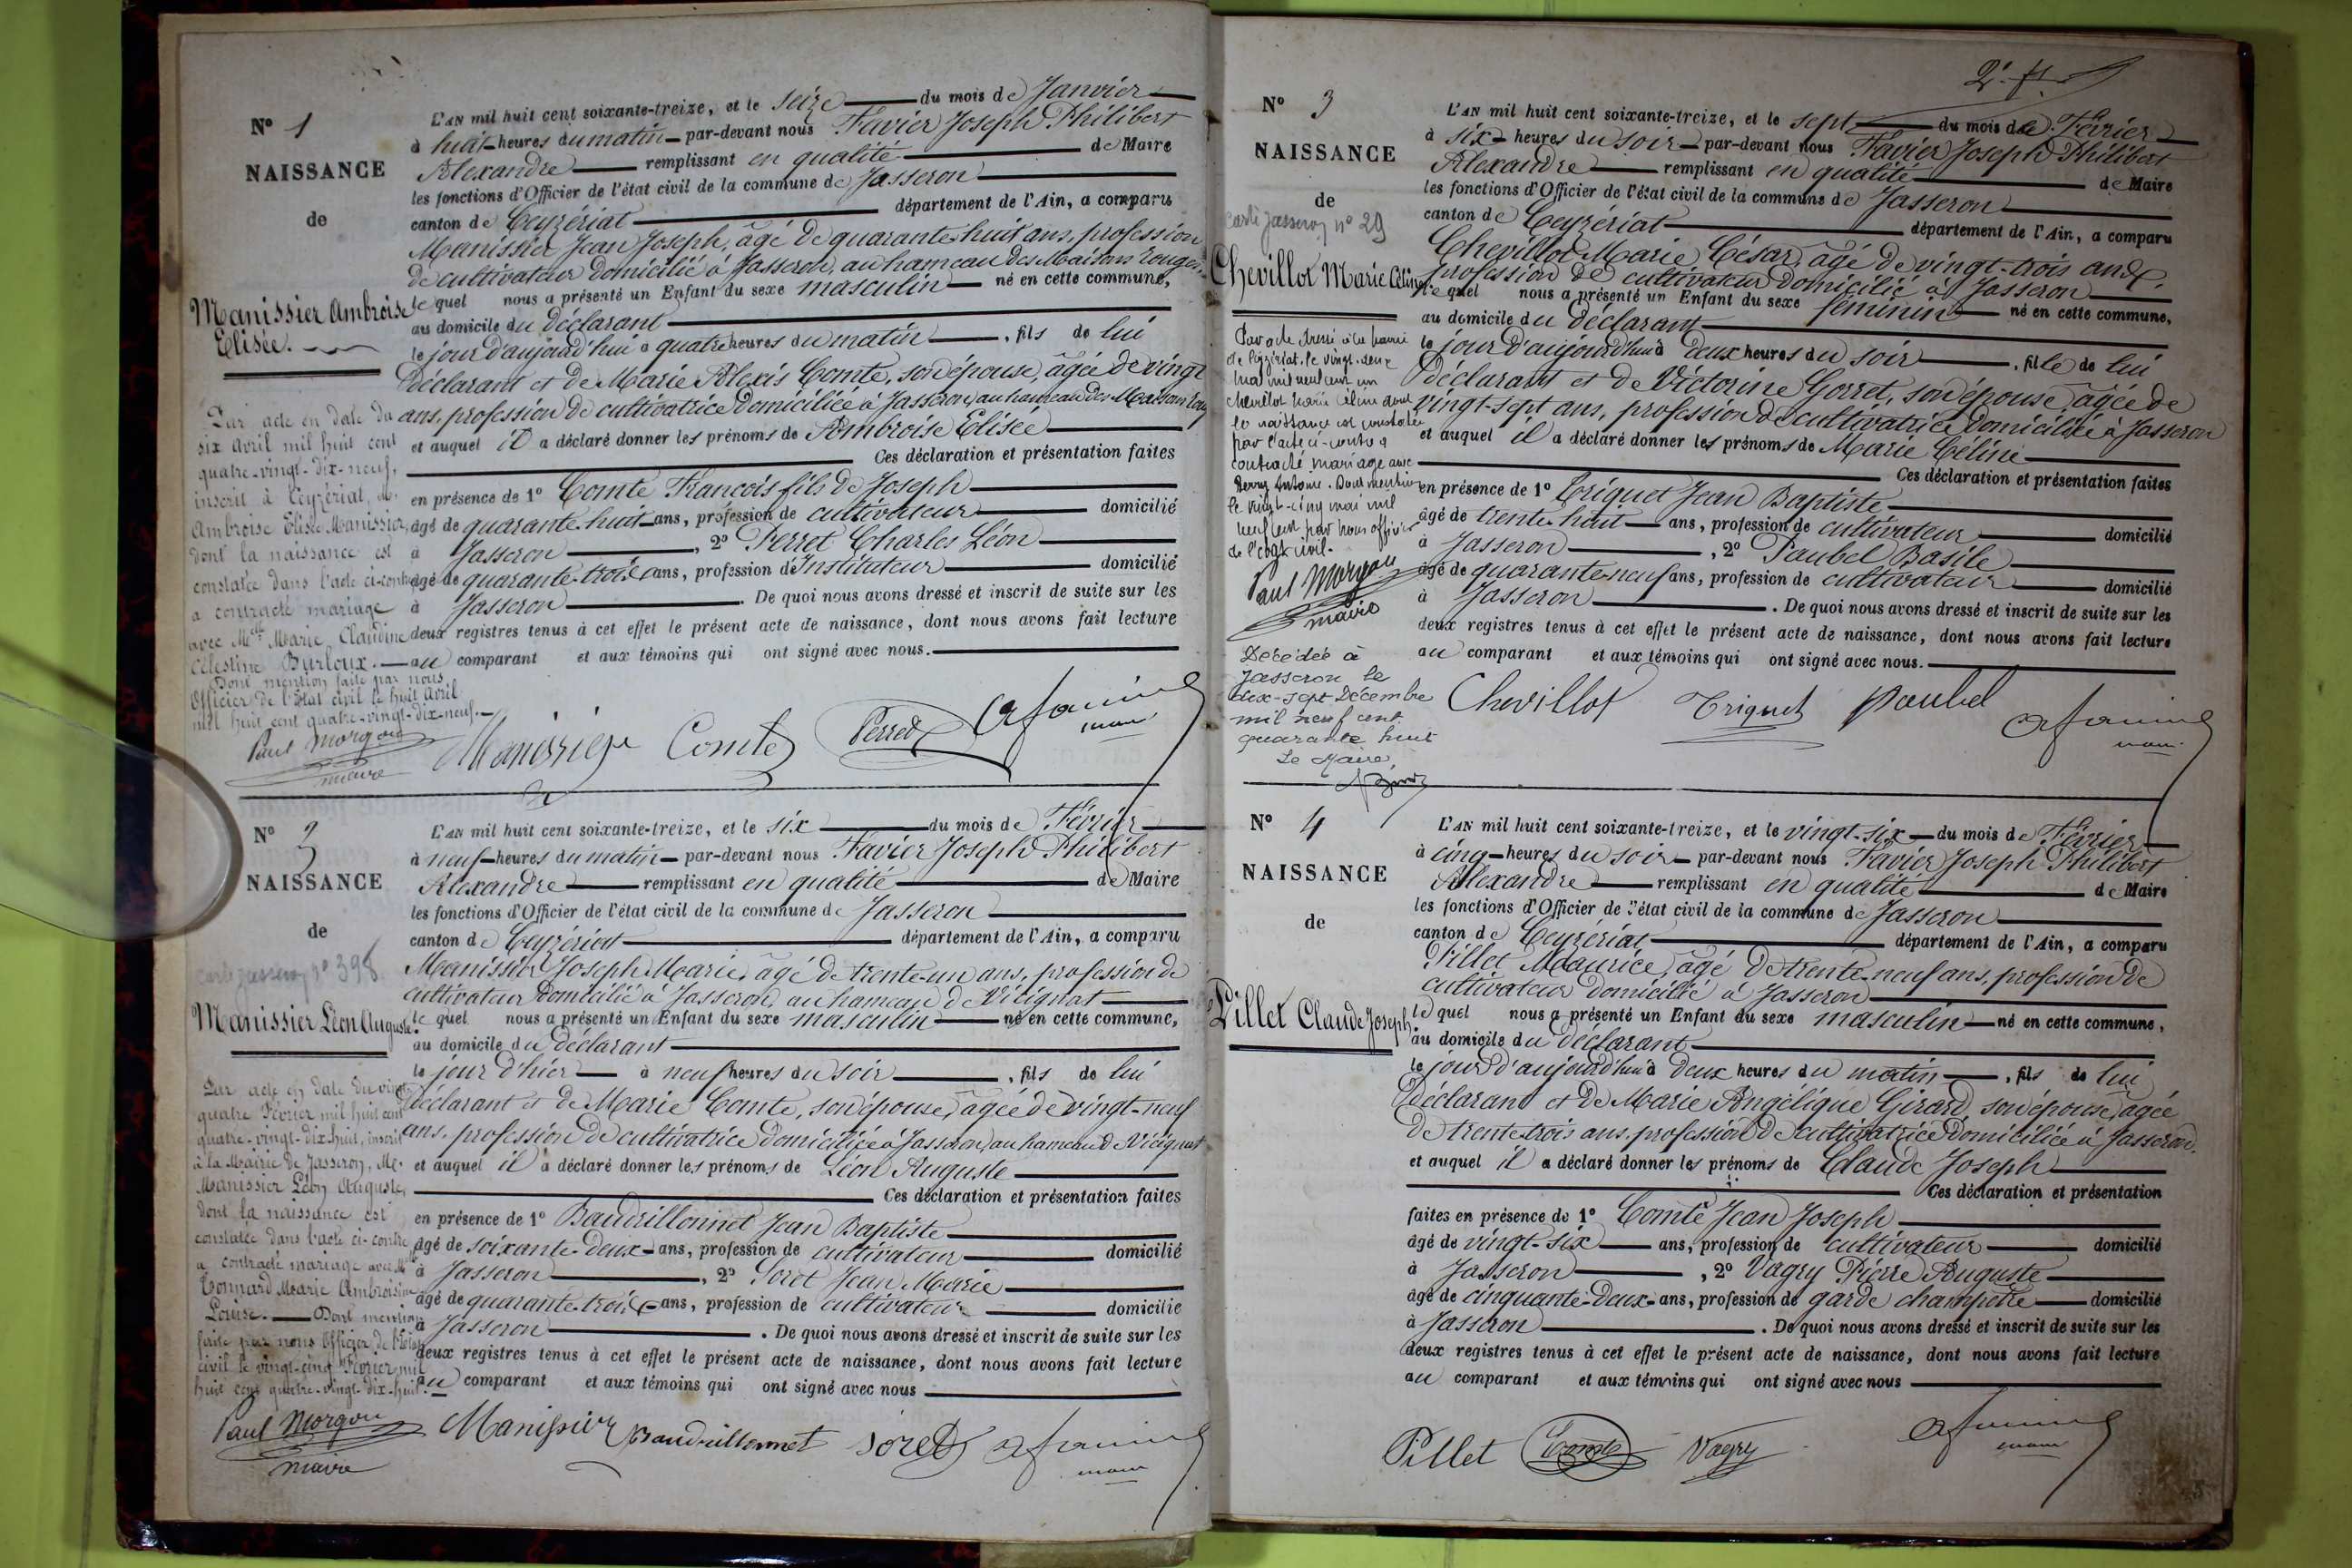 N° 1
NAISSANCE
de
Manissier Ambroise
Elisée.
Par acte en date du
six avril mil huit cent
quatre-vingt-dix-neuf,
inscrit à Ceyzériat, Mr
Ambroise Elisée Manissier,
dont la naissance est
constatée dans l'acte ci-contre
a contracté mariage
avec Melle Marie Claudine
Célestine Burloux.
Dont mention faite par nous
Officier de l'état civil le huit avril
mil huit cent quatre-vingt-dix-neuf.
Paul Morgon
maire
L'AN mil huit cent soixante-treize, et le seize du mois de Janvier
à huit heures du matin par-devant nous Favier Joseph Philibert
Alexandre remplissant en qualité de Maire
les fonctions d'Officier de l'état civil de la commune de Jasseron
canton de Ceyzériat département de l'Ain, a comparu
Manissier Jean Joseph, âgé de quarante-huit ans, profession
de cultivateur domicilié à Jasseron, au hameau des Maisons rouges
lequel nous a présenté un Enfant du sexe masculin né en cette commune,
au domicile du déclarant
le jour d'aujourd'hui à quatre heures du matin, fils de lui
déclarant et de Marie Alexis Comte, son épouse, âgée de vingt
ans, profession de cultivatrice domiciliée à Jasseron, au hameau des Maisons roug
et auquel il a déclaré donner les prénoms de Ambroise Elisée
Ces déclaration et présentation faites
en présence de 1° Comte François fils de Joseph
âgé de quarante-huit ans, profession de cultivateur domicilié
à Jasseron, 2° Perret Charles Léon
âgé de quarante-trois ans, profession d'Instituteur domicilié
à Jasseron. De quoi nous avons dressé et inscrit de suite sur les
deux registres tenus à cet effet le présent acte de naissance, dont nous avons fait lecture
au comparant et aux témoins qui ont signé avec nous.
Manissier Comte Perret
N° 2
NAISSANCE
de
Carte Jasseron n° 398
Manissier Léon Auguste.
Par acte en date du vingt-
quatre Février mil huit cent
quatre-vingt-dix huit, inscrit
à la Mairie de Jasseron, Mr
Manissier Léon Auguste,
dont la naissance est
constatée dans l'acte ci-contre
a contracté mariage avec Melle
Tonnard Marie Ambroisine
Louise. Dont mention
faite par nous Officier de l'Etat
civil le vingt-cinq Février mil
huit cent quatre-vingt-dix-huit.
Paul Morgon
maire
L'AN mil huit cent soixante-treize, et le six du mois de Février
à neuf heures du matin par-devant nous Favier Joseph Philibert
Alexandre remplissant en qualité de Maire
les fonctions d'Officier de l'état civil de la commune de Jasseron
canton de Ceyzériat département de l'Ain, a comparu
Manissier Joseph Marie, âgé de trente-un ans, profession de
cultivateur domicilié à Jasseron, au hameau de Vicignat
lequel nous a présenté un Enfant du sexe masculin né en cette commune,
au domicile du déclarant
le jour d'hier à neuf heures du soir, fils de lui
déclarant et de Marie Comte, son épouse, âgée de vingt-neuf
ans, profession de cultivatrice domiciliée à Jasseron, au hameau de Vicignat
et auquel il a déclaré donner les prénoms de Léon Auguste
Ces déclaration et présentation faites
en présence de 1° Baudrillonnet Jean Baptiste
âgé de soixante-deux ans, profession de cultivateur domicilié
à Jasseron, 2° Soret Jean Marie
âgé de quarante-trois ans, profession de cultivateur domicilié
à Jasseron. De quoi nous avons dressé et inscrit de suite sur les
deux registres tenus à cet effet le présent acte de naissance, dont nous avons fait lecture
au comparant et aux témoins qui ont signé avec nous
Manissier Baudrillonnet Soret
2e f
N° 3
NAISSANCE
de
Carte Jasseron n° 29
Chevillot Marie Céline
Par acte dressé à la mairie
de Ceyzériat, le vingt-deux
mai mil neuf cent un
Chevillot Marie Céline dont
la naissance est constatée
par l'acte ci-contre a
contracté mariage avec
Antoine. Dont mention
le vingt-cinq mai mil
neuf cent par nous officier
de l'état civil.
Paul Morgon
maire
Décédée à
Jasseron le
dix-sept Décembre
mil neuf cent
quarante huit
Le Maire,
L'AN mil huit cent soixante-treize, et le sept du mois de Février
à six heures du soir par-devant nous Favier Joseph Philibert
Alexandre remplissant en qualité de Maire
les fonctions d'Officier de l'état civil de la commune de Jasseron
canton de Ceyzériat département de l'Ain, a comparu
Chevillot Marie César, âgé de vingt-trois ans,
profession de cultivateur domicilié à Jasseron
lequel nous a présenté un Enfant du sexe féminin né en cette commune,
au domicile du déclarant
le jour d'aujourd'hui à deux heures du soir, fille de lui
déclarant et de Victorine Gorret, son épouse, âgée de
vingt-sept ans, profession de cultivatrice domiciliée à Jasseron
et auquel il a déclaré donner les prénoms de Marie Céline
Ces déclaration et présentation faites
en présence de 1° Triquet Jean Baptiste
âgé de trente-huit ans, profession de cultivateur domicilié
à Jasseron, 2° Paubel Basile
âgé de quarante-neuf ans, profession de cultivateur domicilié
à Jasseron. De quoi nous avons dressé et inscrit de suite sur les
deux registres tenus à cet effet le présent acte de naissance, dont nous avons fait lecture
au comparant et aux témoins qui ont signé avec nous.
Chevillot Triquet Paubel
N° 4
NAISSANCE
de
Pillet Claude Joseph.
L'AN mil huit cent soixante-treize, et le vingt-six du mois de Février
à cinq heures du soir par-devant nous Favier Joseph Philibert
Alexandre remplissant en qualité de Maire
les fonctions d'Officier de l'état civil de la commune de Jasseron
canton de Ceyzériat département de l'Ain, a comparu
Pillet Maurice, âgé de trente-neuf ans, profession de
cultivateur domicilié à Jasseron
lequel nous a présenté un Enfant du sexe masculin né en cette commune,
au domicile du déclarant
le jour d'aujourd'hui à deux heures du matin, fils de lui
Déclarant et de Marie Angélique Girard, son épouse, âgée
de trente-trois ans, profession de cultivatrice domiciliée à Jasseron.
et auquel il a déclaré donner les prénoms de Claude Joseph
Ces déclaration et présentation
faites en présence de 1° Comte Jean Joseph
âgé de vingt-six ans, profession de cultivateur domicilié
à Jasseron, 2° Vagry Pierre Auguste
âgé de cinquante-deux ans, profession de garde champêtre domicilié
à Jasseron. De quoi nous avons dressé et inscrit de suite sur les
deux registres tenus à cet effet le présent acte de naissance, dont nous avons fait lecture
au comparant et aux témoins qui ont signé avec nous
Pillet Comte Vagry